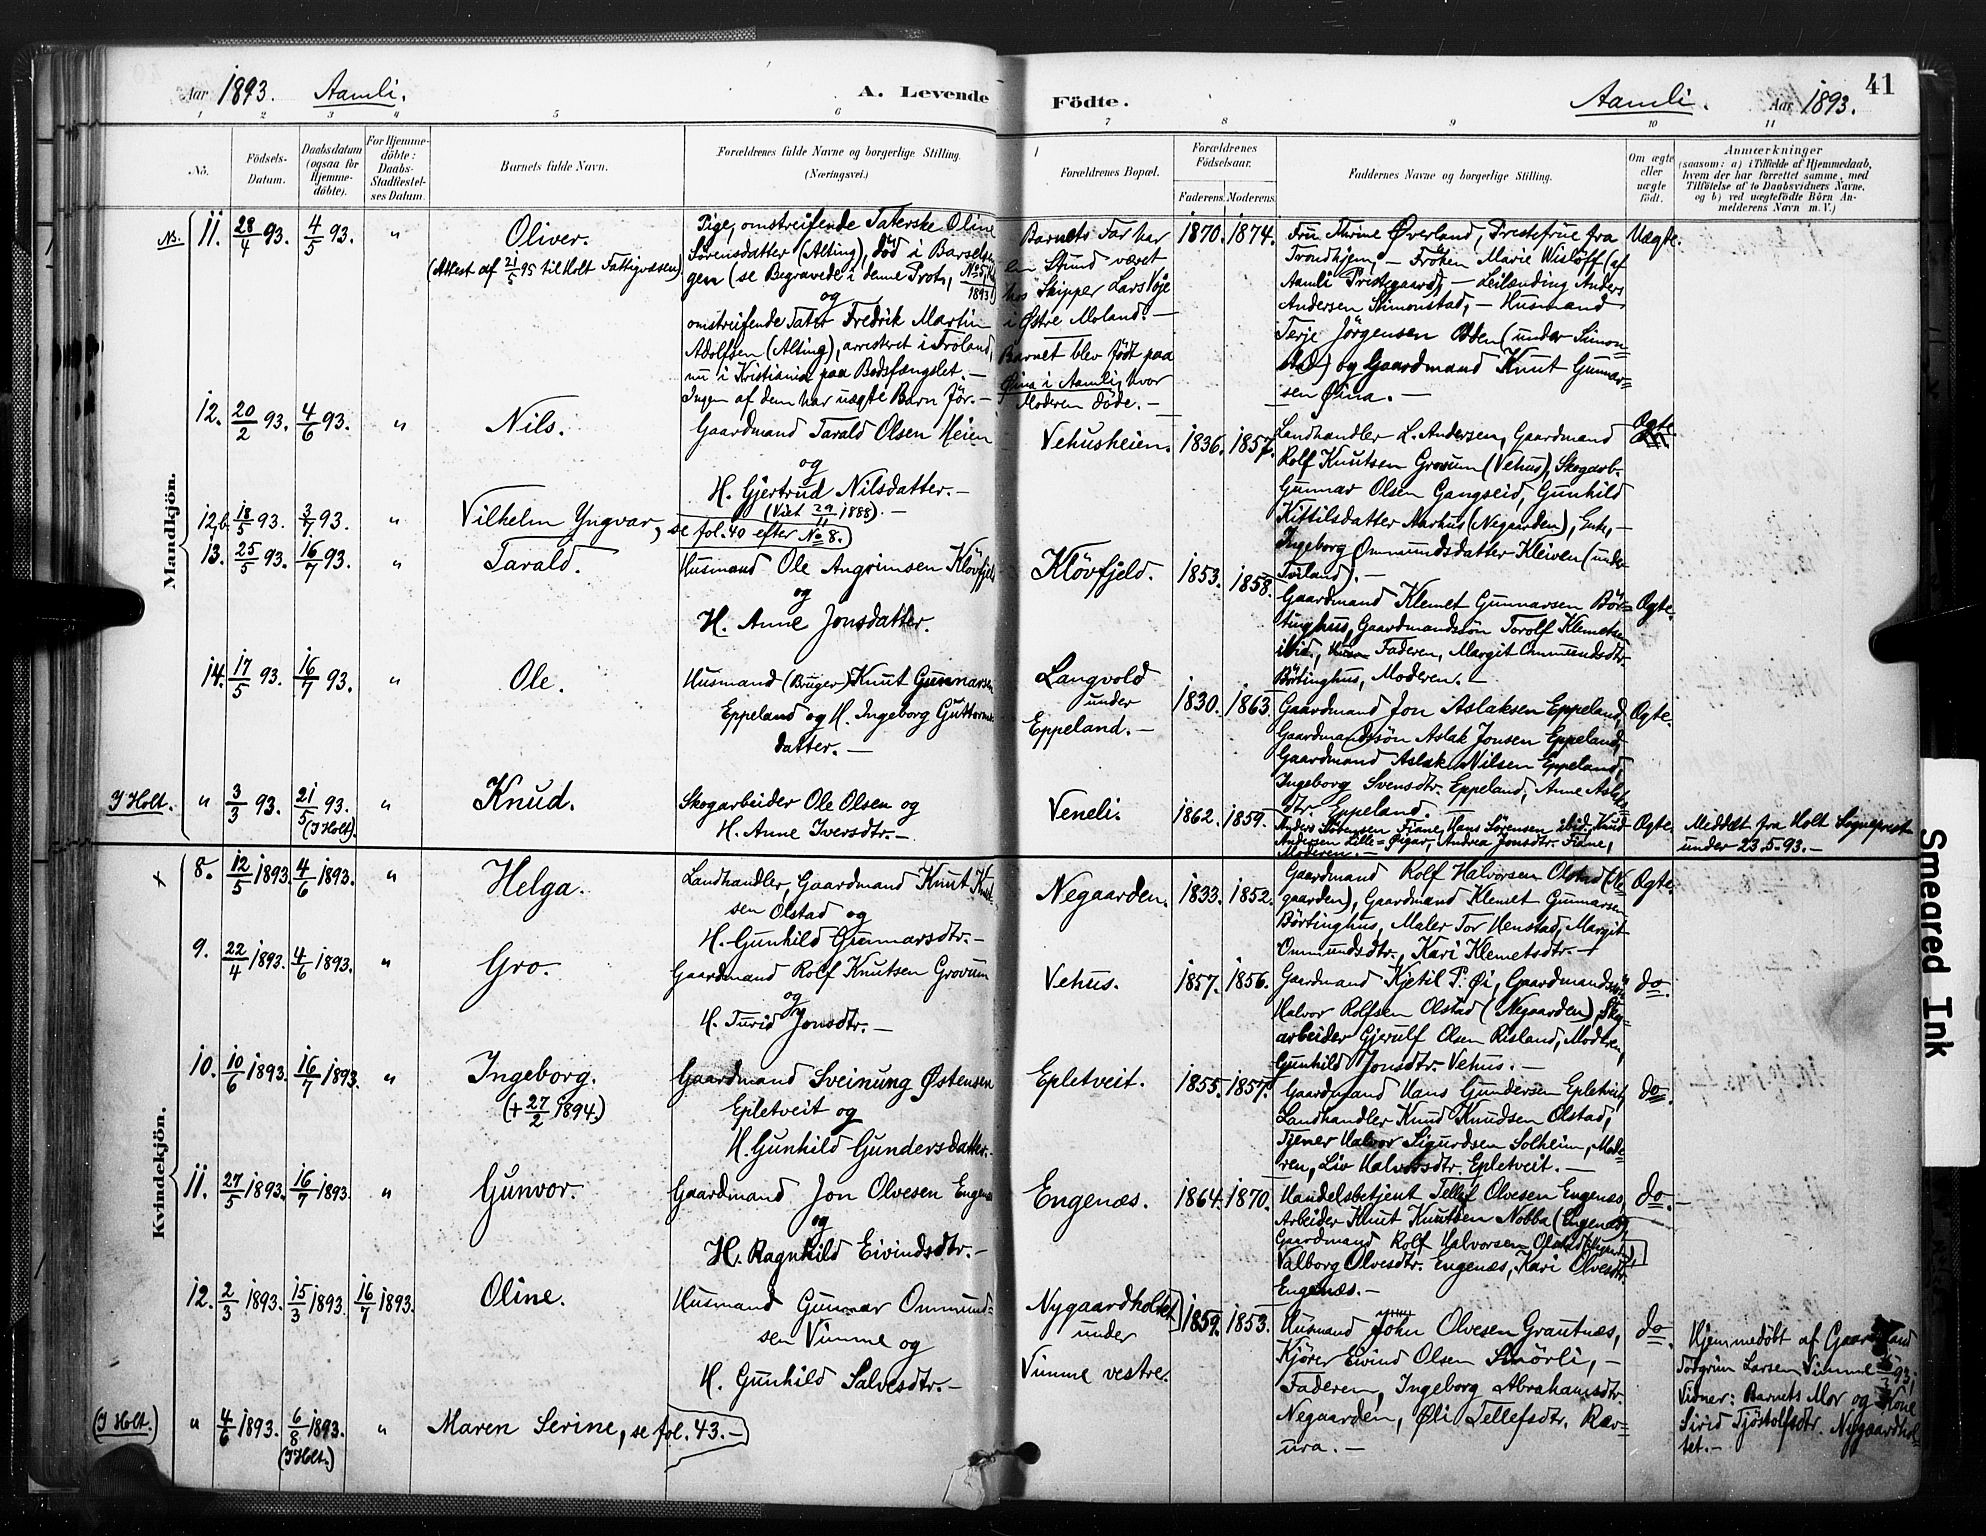 Aar 1893. Aamli. A. Levende Födte. Aamli. Aar 1893. 41
1 2 3 4 5 6 7 8 9 10 11
No.
Födsels-
Datum.
Daabsdatum
(ogsaa for
Hjemme-
döbte).
For Hjemme-
döbte:
Daabs-
Stadfæstel-
ses Datum.
Barnets fulde Navn.
Forældrenes fulde Navne og borgerlige Stilling.
(Næringsvei.)
Forældrenes Bopæl.
Forældrenes
Födselsaar.
Faderens. Moderens.
Faddernes Navne og borgerlige Stilling.
Om ægte
eller
uægte
födt.
Anmærkninger
(saasom: a) i Tilfælde af Hjemmedaab,
hvem der har forrettet samme, med
Tilföielse af to Daabsvidners Navne,
og b) ved uægtefödte Börn An-
melderens Navn m. V.)
Mandkjön.
NB. 11. 28/4 93. 4/5 93. " Oliver.
(Attest af 21/5 95 til Holt Fattigvæsen)
Pige, omstreifende Taterske Oline
Sørensdatter (Alting), död i Barselsen-
gen (se Begravede i denne Prot., No 5, 1893)
og
omstreifende Tater Fredrik Martin
Adolfsen (Alting), arresteret i Froland,
nu i Kristiania paa Bodsfængslet. —
Ingen af dem har uægte Barn för. —
Barnets Far har
en Stund været
hos Skipper Lars Vöje
i Østre Moland. —
Barnet blev födt paa
Øina i Aamli, hvor
Moderen döde. —
1870. 1874.
Fru Thrine Øverland, Prestefrue fra
Trondhjem, — Fröken Marie Wislöff (af
Aamli Prestegaard), — Leilænding Anders
Andersen Simonstad, — Husmand
Terje Jörgensen Odden (under Simon-
stad) og Gaardmand Knut Gunnar-
sen Øina. —
Uægte.
12. 20/2 93. 4/6 93. " Nils.
Gaardmand Tarald Olsen Heien
og
H. Gjertrud Nilsdatter. —
(Viet 29/11 1888). —
Vehusheien. 1836. 1857.
Landhandler L. Andersen, Gaardmand
Rolf Knutsen Grovum (Vehus), Skogarb.
Gunnar Olsen Gangseid, Gunhild
Kittilsdatter Aarhus (Negaarden), Enke, —
Ingeborg Ommundsdatter Kleiven (under
Tviland). —
Ægte
12,b. 18/5 93. 3/7 93. " Vilhelm Yngvar, se fol. 40 efter No 8.)
13. 25/5 93. 16/7 93. " Tarald.
Husmand Ole Angrimsen Klövfjeld
og
H. Anne Jonsdatter.
Klövfjeld. 1853. 1858.
Gaardmand Klemet Gunnarsen Bör-
tinghus, Gaardmandssön Torolf Klemetsen
ibid., Faderen, Margit Ommundsdtr.
Börtinghus, Moderen. —
Ægte.
14. 17/5 93. 16/7 93. " Ole.
Husmand (Bruger) Knut Gunnarsen
Eppeland og H. Ingeborg Guttorms-
datter. —
Langvold
under
Eppeland. —
1830. 1863.
Gaardmand Jon Aslaksen Eppeland,
Gaardmandssön Aslak Jonsen Eppeland,
Gaardmand Aslak Nilsen Eppeland,
Ingeborg Svensdtr. Eppeland, Anne Aslaks-
dtr. Eppeland.
Ægte.
I Holt. " 3/3 93. 21/5 93. (I Holt). " Knud.
Skogarbeider Ole Olsen og
H. Anne Iversdtr. —
Veneli. 1862. 1859.
Anders Sörensen Fiane, Hans Sörensen ibid., Knud
Andersen Lille-Øigar, Andrea Jonsdtr. Fiane,
Moderen. —
Ægte.
Meddelt fra Holt Sogneprest
under 23.5.93. —
Kvindekjön.
+ 8. 12/5 1893. 4/6 1893. " Helga.
Landhandler, Gaardmand Knut Knut-
sen Olstad og
H. Gunhild Gunnarsdtr. —
Negaarden. 1833. 1852.
Gaardmand Rolf Halvorsen Olstad (Ne-
gaarden), Gaardmand Klemet Gunnarsen
Börtinghus, Maler Tor Henstad, Margit
Ommundsdtr., Kari Klemetsdtr. —
Ægte.
9. 22/4 1893. 4/6 1893. " Gro.
Gaardmand Rolf Knutsen Grovum
og
H. Turid Jonsdtr. —
Vehus. 1857. 1856.
Gaardmand Kjetil P. Øi, Gaardmandssön
Halvor Rolfsen Olstad (Negaarden), Skog-
arbeider Gjerulf Olsen Risland, Moderen,
Gunhild Jonsdtr. Vehus. —
do.
10. 10/6 1893. 16/7 1893. " Ingeborg.
(+ 27/2 1894.)
Gaardmand Sveinung Østensen
Epletveit og
H. Gunhild Gundersdatter.
Epletveit. 1855. 1857.
Gaardmand Hans Gundersen Epletveit,
Landhandler Knud Knudsen Olstad,
Tjener Halvor Sigurdsen Solheim, Mode-
ren, Liv Halvorsdtr. Epletveit. —
do.
11. 27/5 1893. 16/7 1893. " Gunvor.
Gaardmand Jon Olvesen Engenæs
og
H. Ragnhild Eivindsdtr. —
Engenæs. 1864. 1870.
Handelsbetjent Tellef Olvesen Engenæs,
Arbeider Knut Knutsen Nobba (Engenæs),
Gaardmand Rolf Halvorsen Olstad
Valborg Olvesdtr. Engenæs, Kari Olvesdtr.
Engenæs. —
do. —
12. 2/3 1893. 15/3 1893. 16/7 1893. Oline.
Husmand Gunnar Ommund-
sen Vimme og
H. Gunhild Salvesdtr. —
Nygaardholtet
under
Vimme vestre.
1859. 1853.
Husmand John Olvesen Grautnæs,
Kjörer Eivind Olsen Smörli, —
Faderen, Ingeborg Abrahamsdtr.
Negaarden, Øli Tellefsdtr. Rær-
ura. —
do.
Hjemmedöbt af Gaardmand
Torgrim Larsen Vimme 15/3 93;
Vidner: Barnets Mor og Kone
Sirid Tjöstolfsdtr. Nygaardhol-
tet. —
(I Holt.) " 4/6 1893. 6/8 1893. (I Holt.) " Maren Serine, se fol. 43. —
Smeared Ink